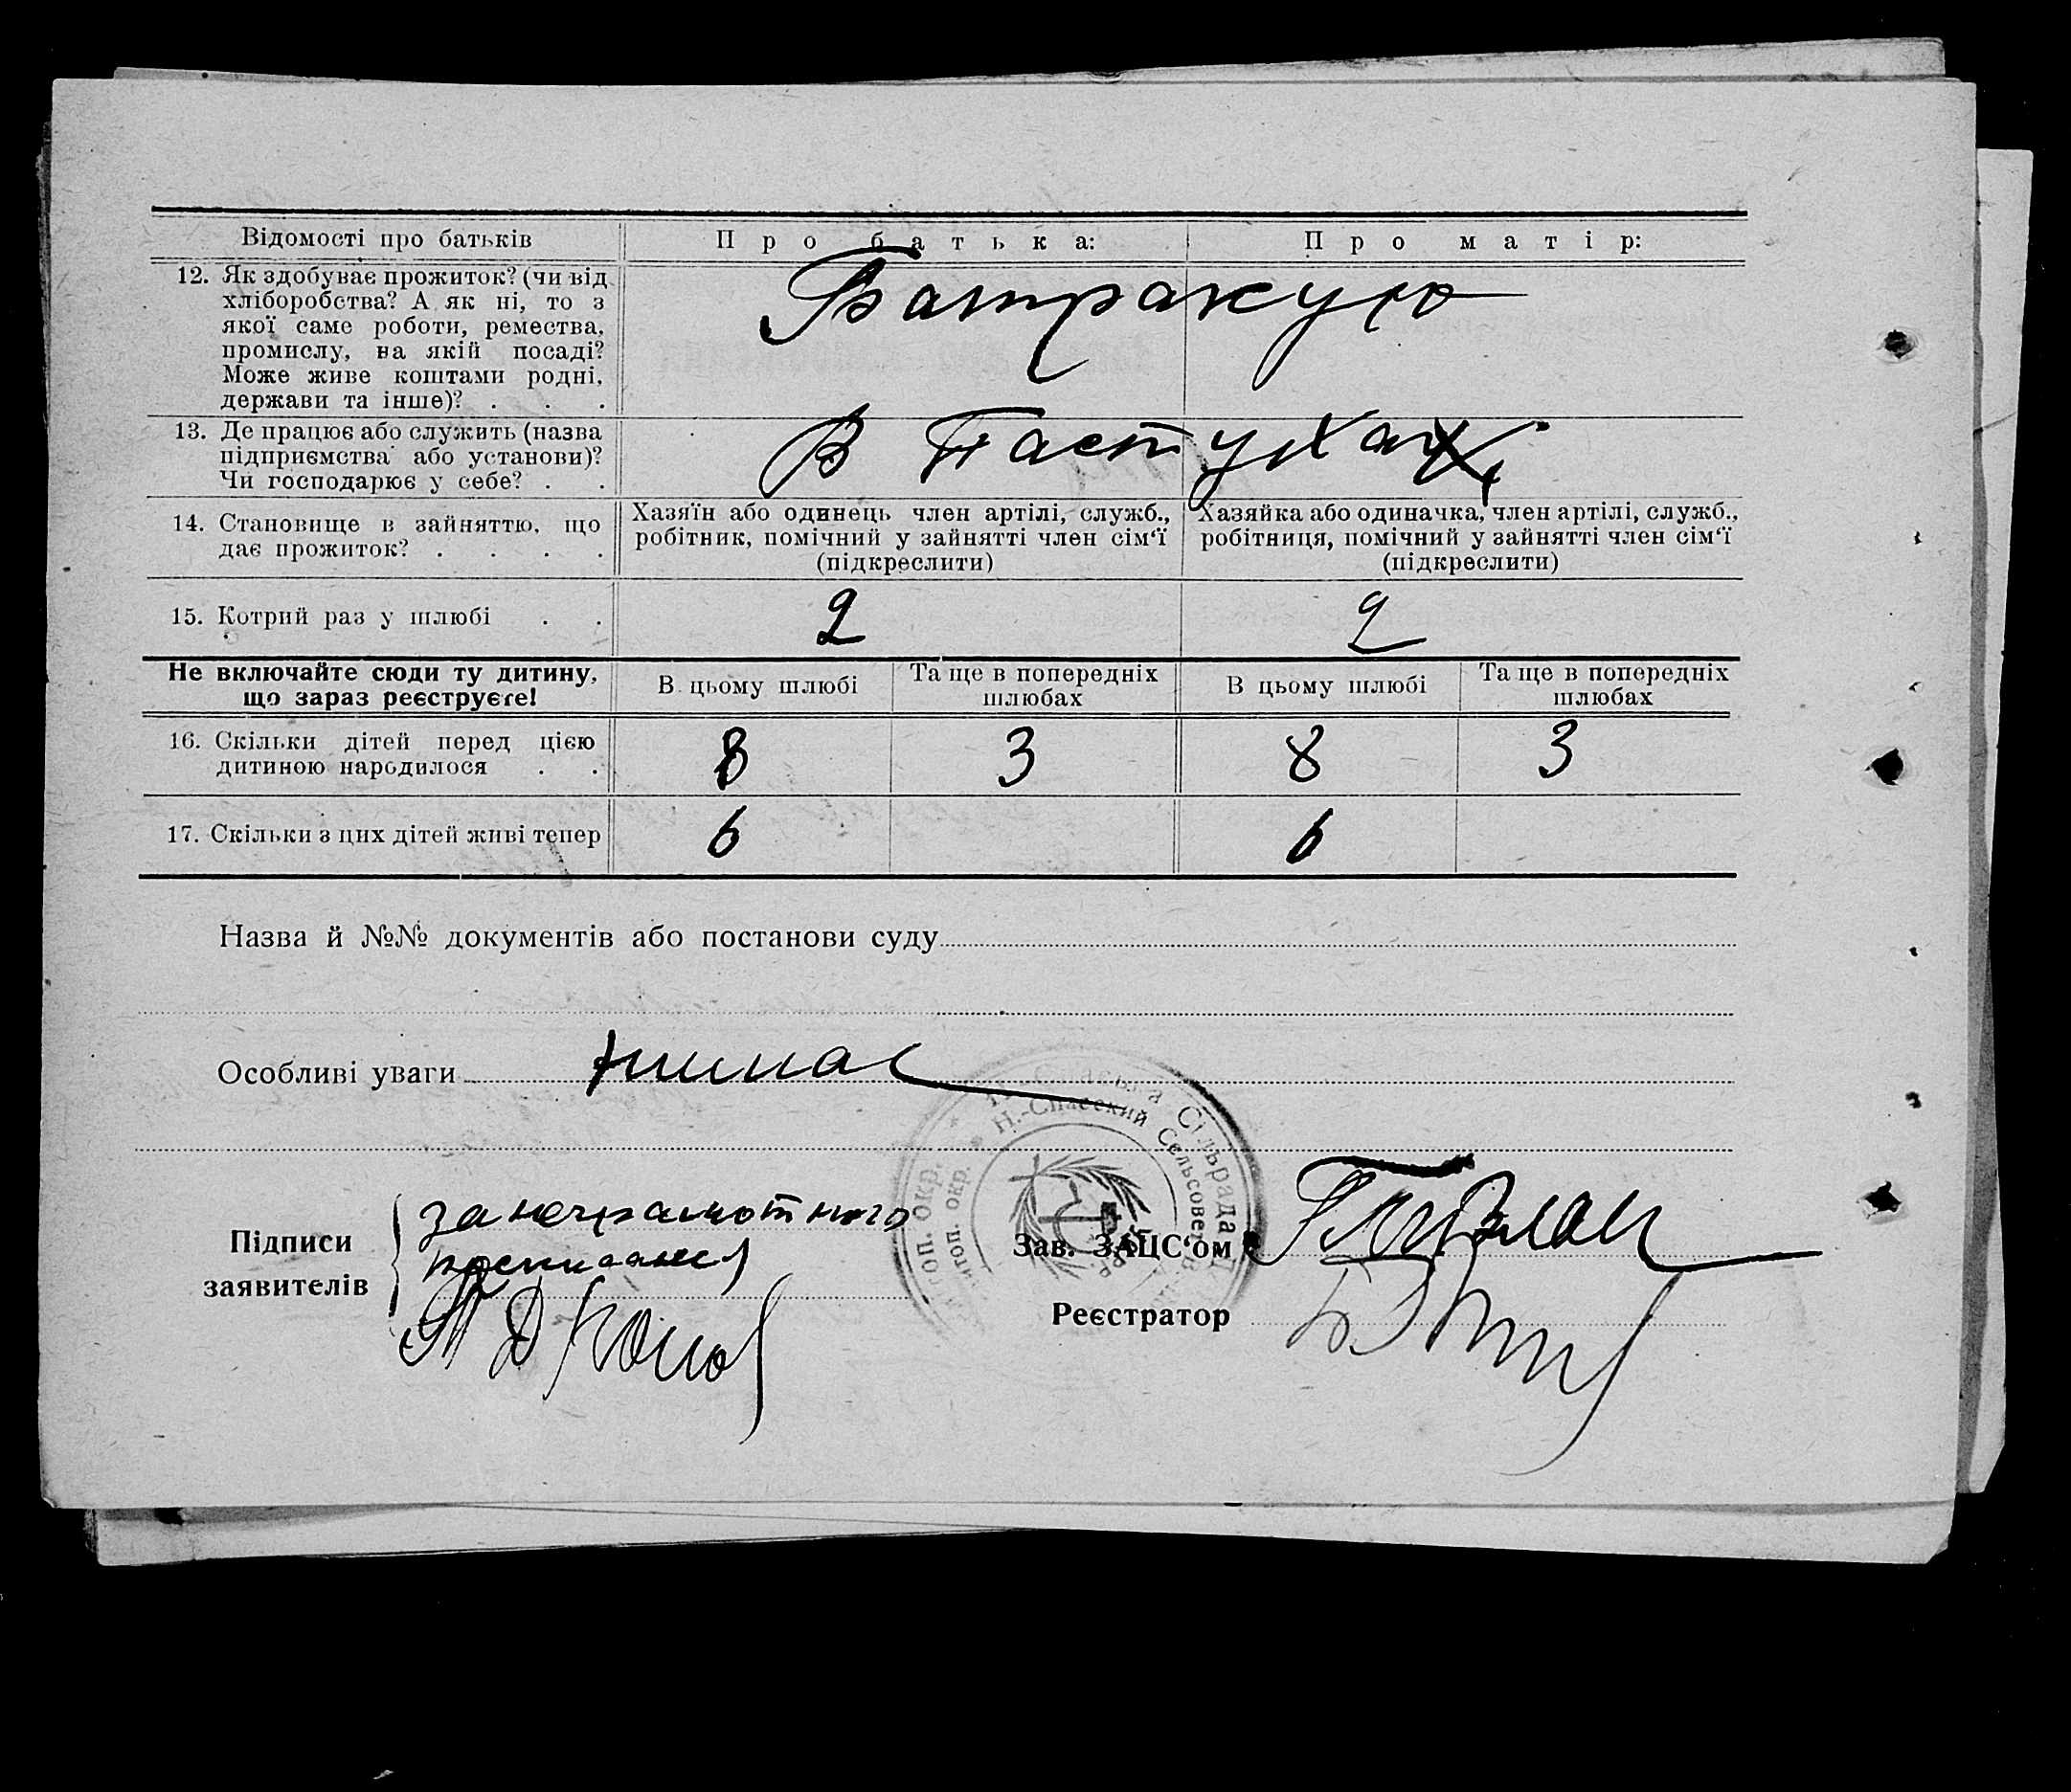 Відомості про батьків
Про батька:
Про матір:
12. Як здобуває прожиток? (чи від
хліборобства? А як ні, то з
якої саме роботи, ремества,
промислу, на якій посаді?
Може живе коштами родні,
держави та інше)? . . .
Батракую
13. Де працює або служить (назва
підприємства або установи)?
Чи господарює у себе? . .
В Пастухах
14. Становище в зайняттю, що
дає прожиток? . . . .
Хазяїн або одинець член артілі, служб.,
робітник, помічний у зайнятті член сім‘ї
(підкреслити)
Хазяйка або одиначка, член артілі, служб.,
робітниця, помічний у зайнятті член сім‘ї
(підкреслити)
15. Котрий раз у шлюбі . .
2
2
Не включайте сюди ту дитину,
що зараз реєструєте!
В цьому шлюбі
Та ще в попередніх
шлюбах
В цьому шлюбі
Та ще в попередніх
шлюбах
16. Скільки дітей перед цією
дитиною народилося . .
8
3
8
3
17. Скільки з цих дітей живі тепер
6
6
Назва й №№ документів або постанови суду
Особливі уваги
Сільрада
Н.-Спасский Сельсовет
Підписи
заявителів
за неграмотного
Зав. ЗАЦС‘ом
Реєстратор